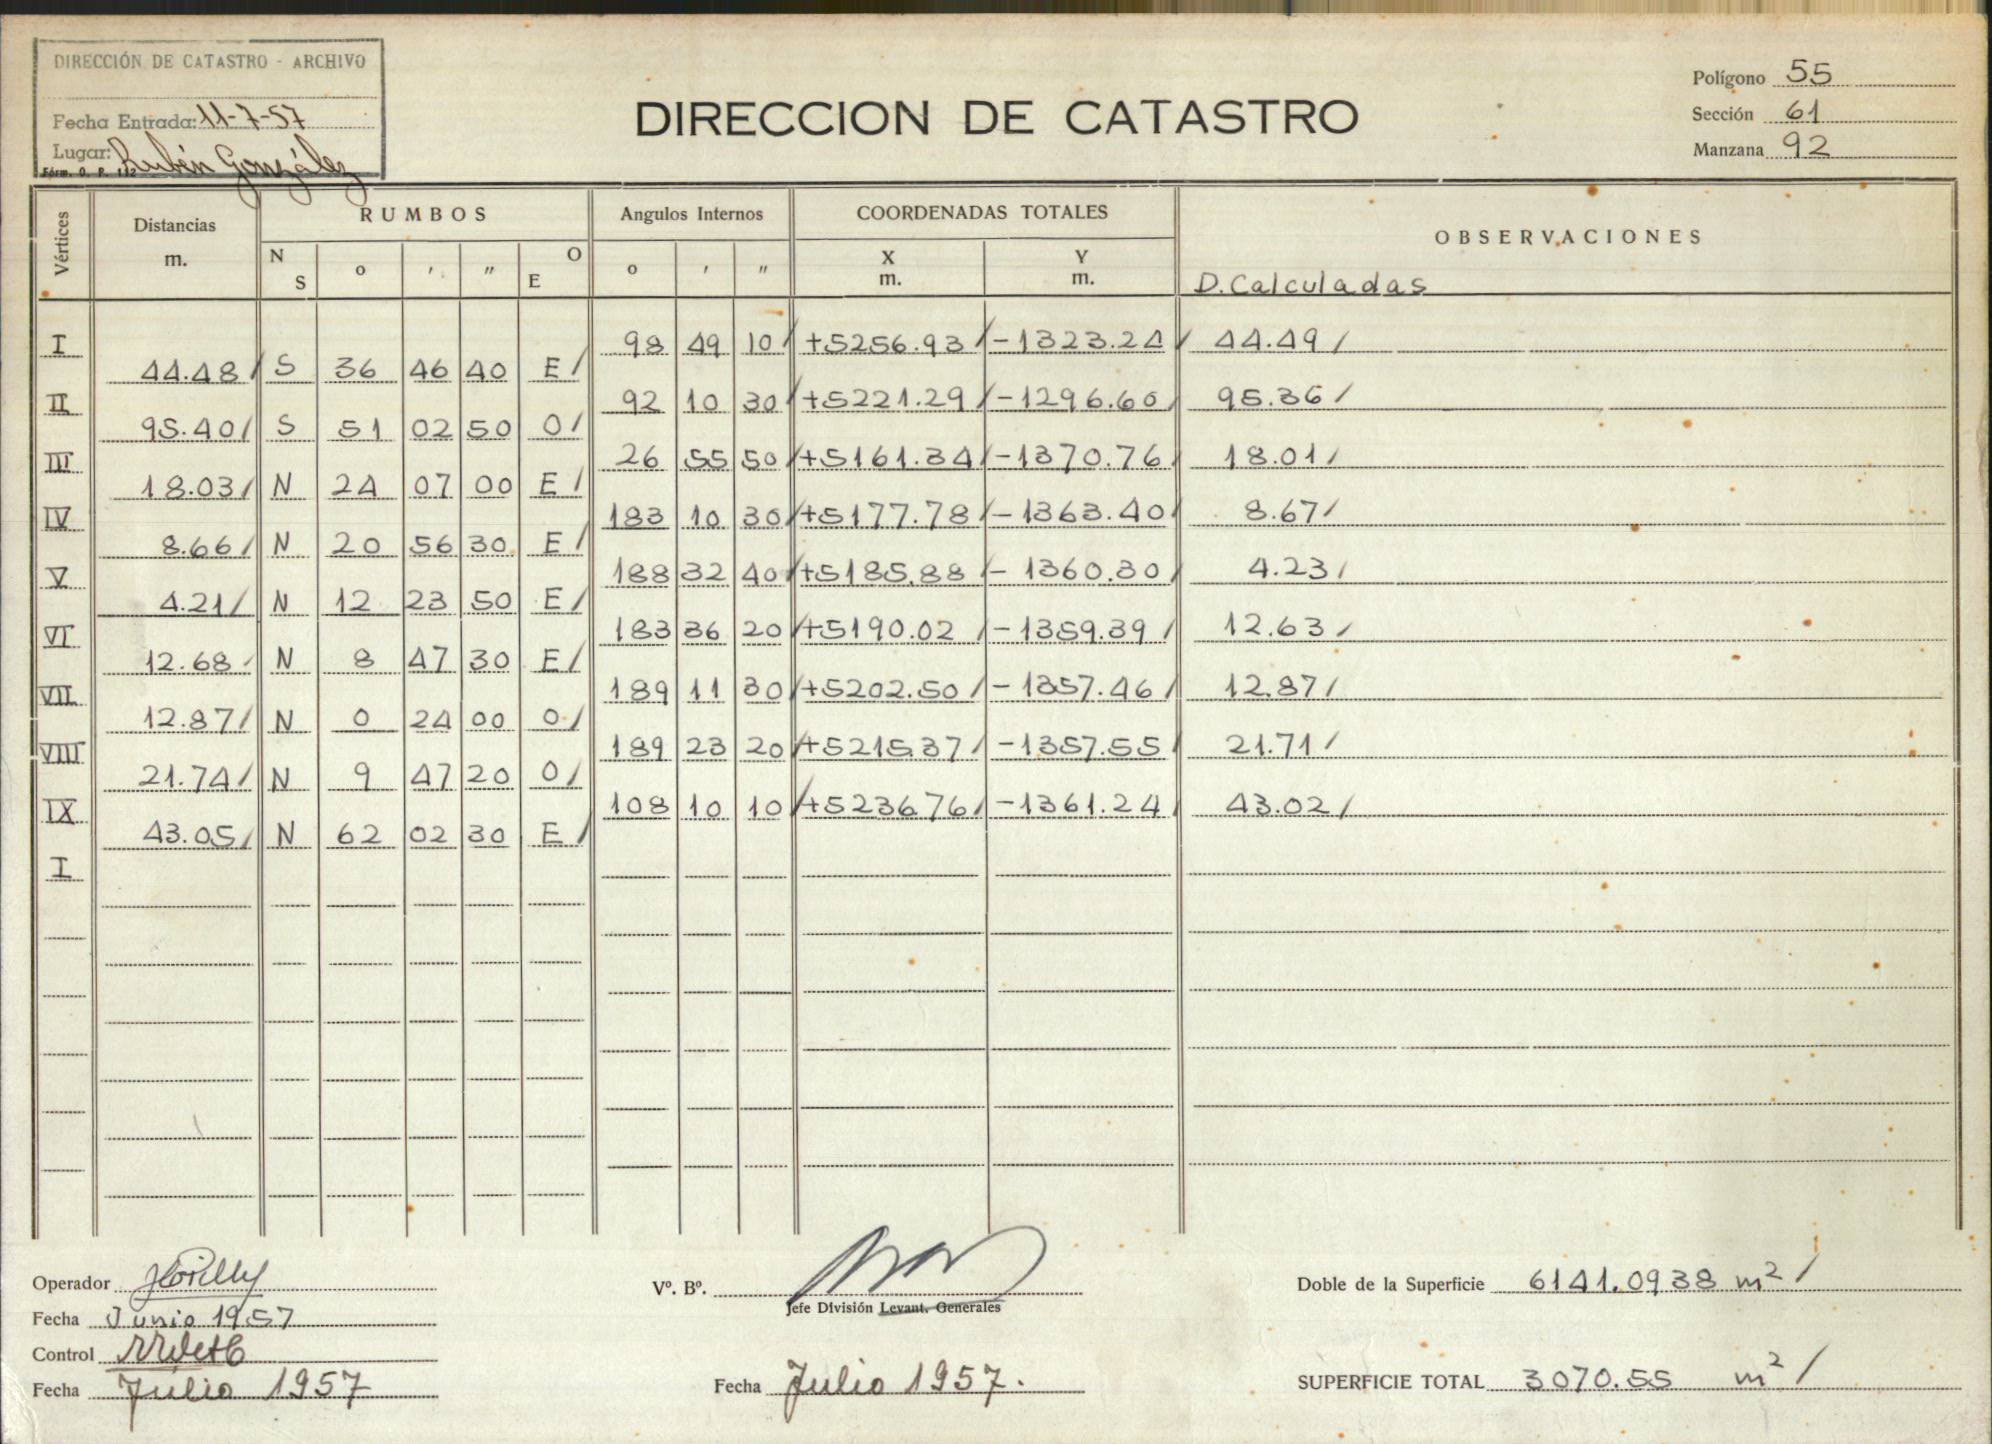 DIRECCIÓN DE CATASTRO - ARCHIVO
Fecha Entrada: 11-7-57
Lugar: Rubén González
Fórm. O. P. 112
DIRECCION DE CATASTRO
Polígono 55
Sección 61
Manzana 92
Vértices Distancias m. RUMBOS Angulos Internos COORDENADAS TOTALES OBSERVACIONES
N S o ' " O E o ' " X m. Y m. D. Calculadas
I 98 49 10/ +5256.93/ -1323.24/ 44.49/
44.48/ S 36 46 40 E/
II 92 10 30/ +5221.29/ -1296.60/ 95.36/
95.40/ S 51 02 50 O/
III 26 55 50/ +5161.34/ -1370.76/ 18.01/
18.03/ N 24 07 00 E/
IV 183 10 30/ +5177.78/ -1363.40/ 8.67/
8.66/ N 20 56 30 E/
V 188 32 40/ +5185.88/ -1360.30/ 4.23/
4.21/ N 12 23 50 E/
VI 183 36 20/ +5190.02/ -1359.39/ 12.63/
12.68/ N 8 47 30 E/
VII 189 11 30/ +5202.50/ -1357.46/ 12.87/
12.87/ N 0 24 00 O/
VIII 189 23 20/ +5215.37/ -1357.55/ 21.71/
21.74/ N 9 47 20 O/
IX 108 10 10/ +5236.76/ -1361.24/ 43.02/
43.05/ N 62 02 30 E/
I
Operador
Fecha Junio 1957
Control
Fecha Julio 1957
Vº. Bº.
Jefe División Levant. Generales
Fecha Julio 1957.
Doble de la Superficie 6141.0938 m2/
SUPERFICIE TOTAL 3070.55 m2/